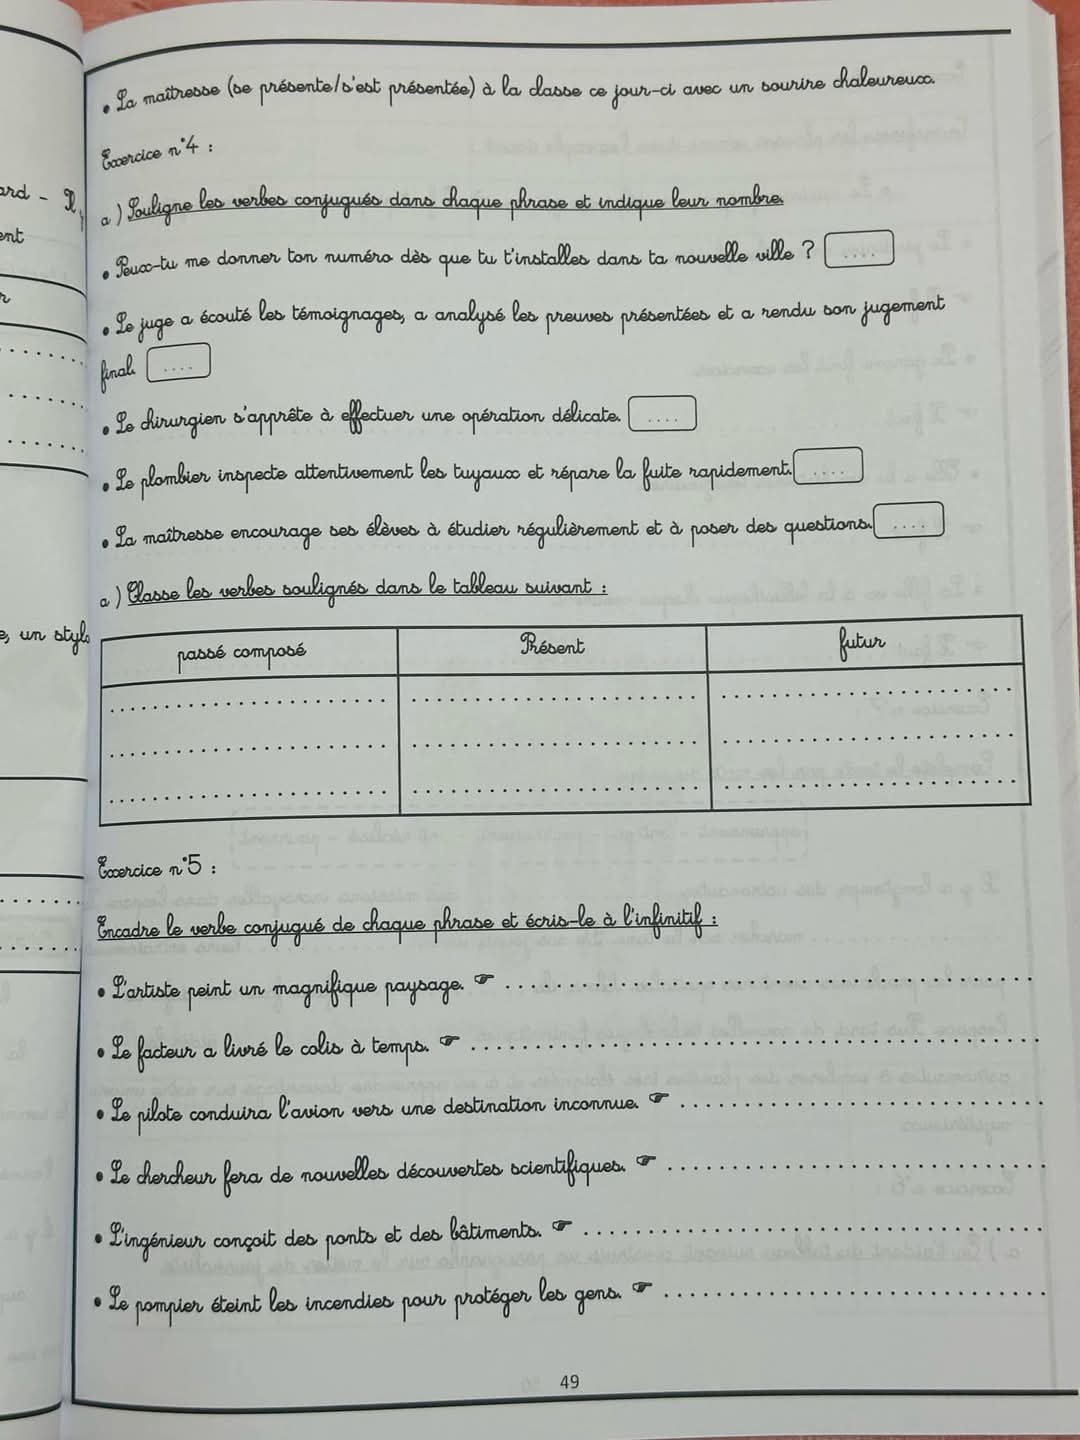 • La maîtresse (se présente/s'est présentée) à la classe ce jour-ci avec un sourire chaleureux.
Exercice n°4 :
a ) Souligne les verbes conjugués dans chaque phrase et indique leur nombre.
• Peux-tu me donner ton numéro dès que tu t'installes dans ta nouvelle ville ? ....
• Le juge a écouté les témoignages, a analysé les preuves présentées et a rendu son jugement
final. ....
• Le chirurgien s'apprête à effectuer une opération délicate. ....
• Le plombier inspecte attentivement les tuyaux et répare la fuite rapidement. ....
• La maîtresse encourage ses élèves à étudier régulièrement et à poser des questions. ....
a ) Classe les verbes soulignés dans le tableau suivant :
passé composé Présent futur
Exercice n°5 :
Encadre le verbe conjugué de chaque phrase et écris-le à l'infinitif :
• L'artiste peint un magnifique paysage. ☞
• Le facteur a livré le colis à temps. ☞
• Le pilote conduira l'avion vers une destination inconnue. ☞
• Le chercheur fera de nouvelles découvertes scientifiques. ☞
• L'ingénieur conçoit des ponts et des bâtiments. ☞
• Le pompier éteint les incendies pour protéger les gens. ☞
49